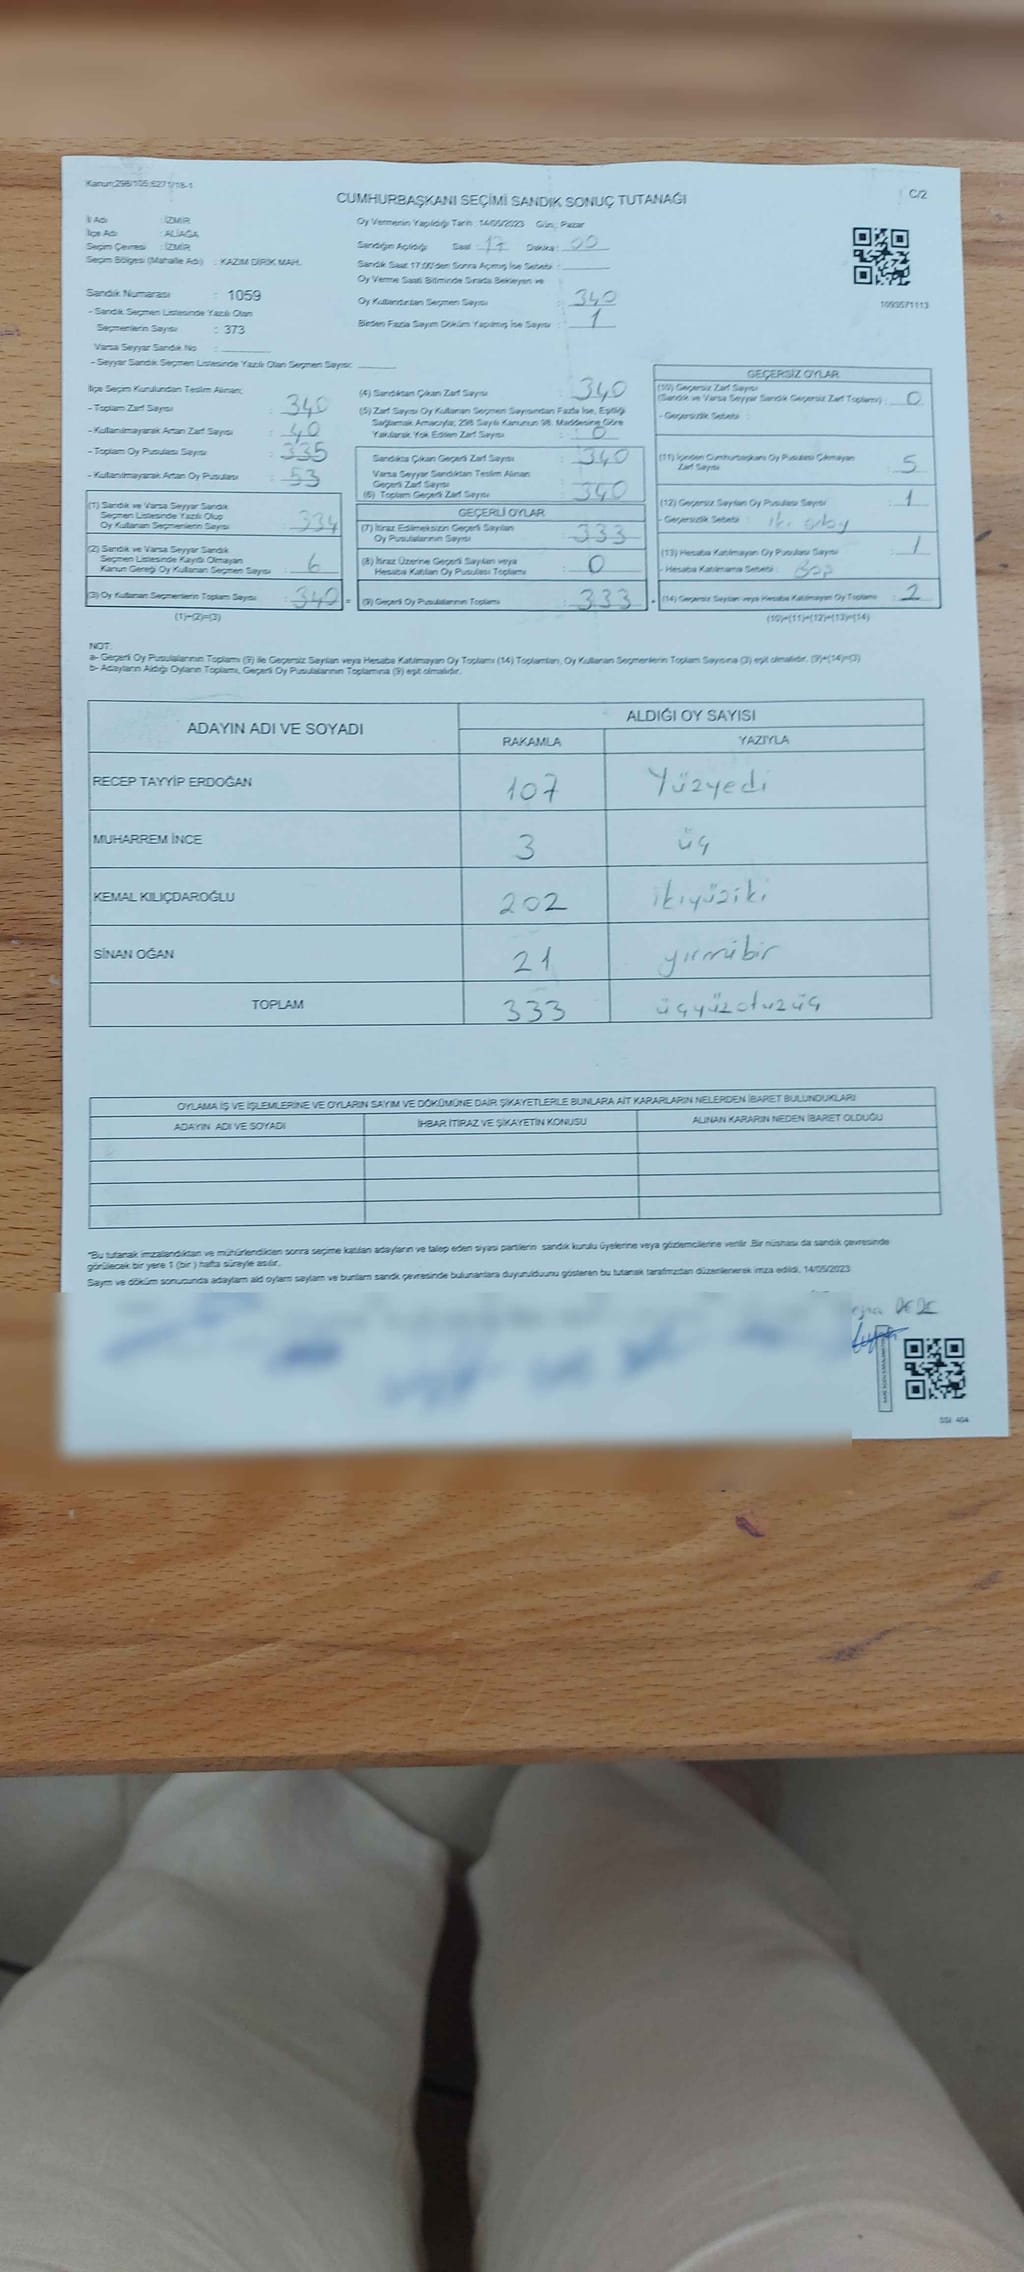 Kanun;298/105;6271/18-1
C/2
CUMHURBAŞKANI SEÇİMİ SANDIK SONUÇ TUTANAĞI
İl Adı : İZMİR
İlçe Adı : ALİAĞA
Seçim Çevresi : İZMİR
Seçim Bölgesi (Mahalle Adı) : KAZIM DİRİK MAH.
Sandık Numarası : 1059
- Sandık Seçmen Listesinde Yazılı Olan
Seçmenlerin Sayısı : 373
Varsa Seyyar Sandık No :
- Seyyar Sandık Seçmen Listesinde Yazılı Olan Seçmen Sayısı:
Oy Vermenin Yapıldığı Tarih : 14/05/2023 Gün : Pazar
Sandığın Açıldığı Saat : 17 Dakika : 00
Sandık Saat 17:00'den Sonra Açılmış İse Sebebi :
Oy Verme Saati Bitiminde Sırada Bekleyen ve
Oy Kullandırılan Seçmen Sayısı : 340
Birden Fazla Sayım Döküm Yapılmış İse Sayısı : 1
1093571113
İlçe Seçim Kurulundan Teslim Alınan;
- Toplam Zarf Sayısı : 340
- Kullanılmayarak Artan Zarf Sayısı : 40
- Toplam Oy Pusulası Sayısı : 335
- Kullanılmayarak Artan Oy Pusulası : 53
(1) Sandık ve Varsa Seyyar Sandık
Seçmen Listesinde Yazılı Olup
Oy Kullanan Seçmenlerin Sayısı : 334
(2) Sandık ve Varsa Seyyar Sandık
Seçmen Listesinde Kaydı Olmayan
Kanun Gereği Oy Kullanan Seçmen Sayısı : 6
(3) Oy Kullanan Seçmenlerin Toplam Sayısı : 340 =
(1)+(2)=(3)
(4) Sandıktan Çıkan Zarf Sayısı : 340
(5) Zarf Sayısı Oy Kullanan Seçmen Sayısından Fazla İse, Eşitliği
Sağlamak Amacıyla; 298 Sayılı Kanunun 98. Maddesine Göre
Yakılarak Yok Edilen Zarf Sayısı : 0
Sandıkta Çıkan Geçerli Zarf Sayısı : 340
Varsa Seyyar Sandıktan Teslim Alınan
Geçerli Zarf Sayısı :
(6) Toplam Geçerli Zarf Sayısı : 340
GEÇERLİ OYLAR
(7) İtiraz Edilmeksizin Geçerli Sayılan
Oy Pusulalarının Sayısı : 333
(8) İtiraz Üzerine Geçerli Sayılan veya
Hesaba Katılan Oy Pusulası Toplamı : 0
(9) Geçerli Oy Pusulalarının Toplamı : 333 +
GEÇERSİZ OYLAR
(10) Geçersiz Zarf Sayısı
(Sandık ve Varsa Seyyar Sandık Geçersiz Zarf Toplamı) : 0
- Geçersizlik Sebebi :
(11) İçinden Cumhurbaşkanı Oy Pusulası Çıkmayan
Zarf Sayısı : 5
(12) Geçersiz Sayılan Oy Pusulası Sayısı : 1
- Geçersizlik Sebebi : iki
(13) Hesaba Katılmayan Oy Pusulası Sayısı : 1
- Hesaba Katılmama Sebebi : Boş
(14) Geçersiz Sayılan veya Hesaba Katılmayan Oy Toplamı : 2
(10)+(11)+(12)+(13)=(14)
NOT:
a- Geçerli Oy Pusulalarının Toplamı (9) ile Geçersiz Sayılan veya Hesaba Katılmayan Oy Toplamı (14) Toplamları, Oy Kullanan Seçmenlerin Toplam Sayısına (3) eşit olmalıdır. (9)+(14)=(3)
b- Adayların Aldığı Oyların Toplamı, Geçerli Oy Pusulalarının Toplamına (9) eşit olmalıdır.
ADAYIN ADI VE SOYADI
ALDIĞI OY SAYISI
RAKAMLA YAZIYLA
RECEP TAYYİP ERDOĞAN 107 Yüzyedi
MUHARREM İNCE 3 üç
KEMAL KILIÇDAROĞLU 202 ikiyüziki
SİNAN OĞAN 21 yirmibir
TOPLAM 333 üçyüzotuzüç
OYLAMA İŞ VE İŞLEMLERİNE VE OYLARIN SAYIM VE DÖKÜMÜNE DAİR ŞİKAYETLERLE BUNLARA AİT KARARLARIN NELERDEN İBARET BULUNDUKLARI
ADAYIN ADI VE SOYADI İHBAR İTİRAZ VE ŞİKAYETİN KONUSU ALINAN KARARIN NEDEN İBARET OLDUĞU
*Bu tutanak imzalandıktan ve mühürlendikten sonra seçime katılan adayların ve talep eden siyasi partilerin sandık kurulu üyelerine veya gözlemcilerine verilir. Bir nüshası da sandık çevresinde
görülecek bir yere 1 (bir ) hafta süreyle asılır.
Sayım ve döküm sonucunda adayların ald oyların sayların ve bunların sandk çevresinde bulunanlara duyurulduunu gösteren bu tutanak tarafmzdan düzenlenerek imza edildi. 14/05/2023
DEDE
SSI: 404